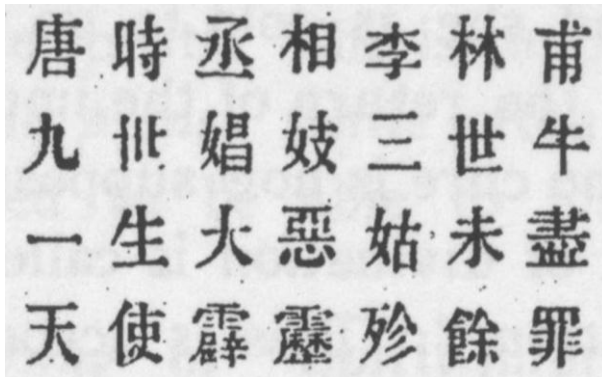 唐時丞相李林甫
九丗娼妓三世牛
一生大惡姑未盡
天使霹靂殄餘罪